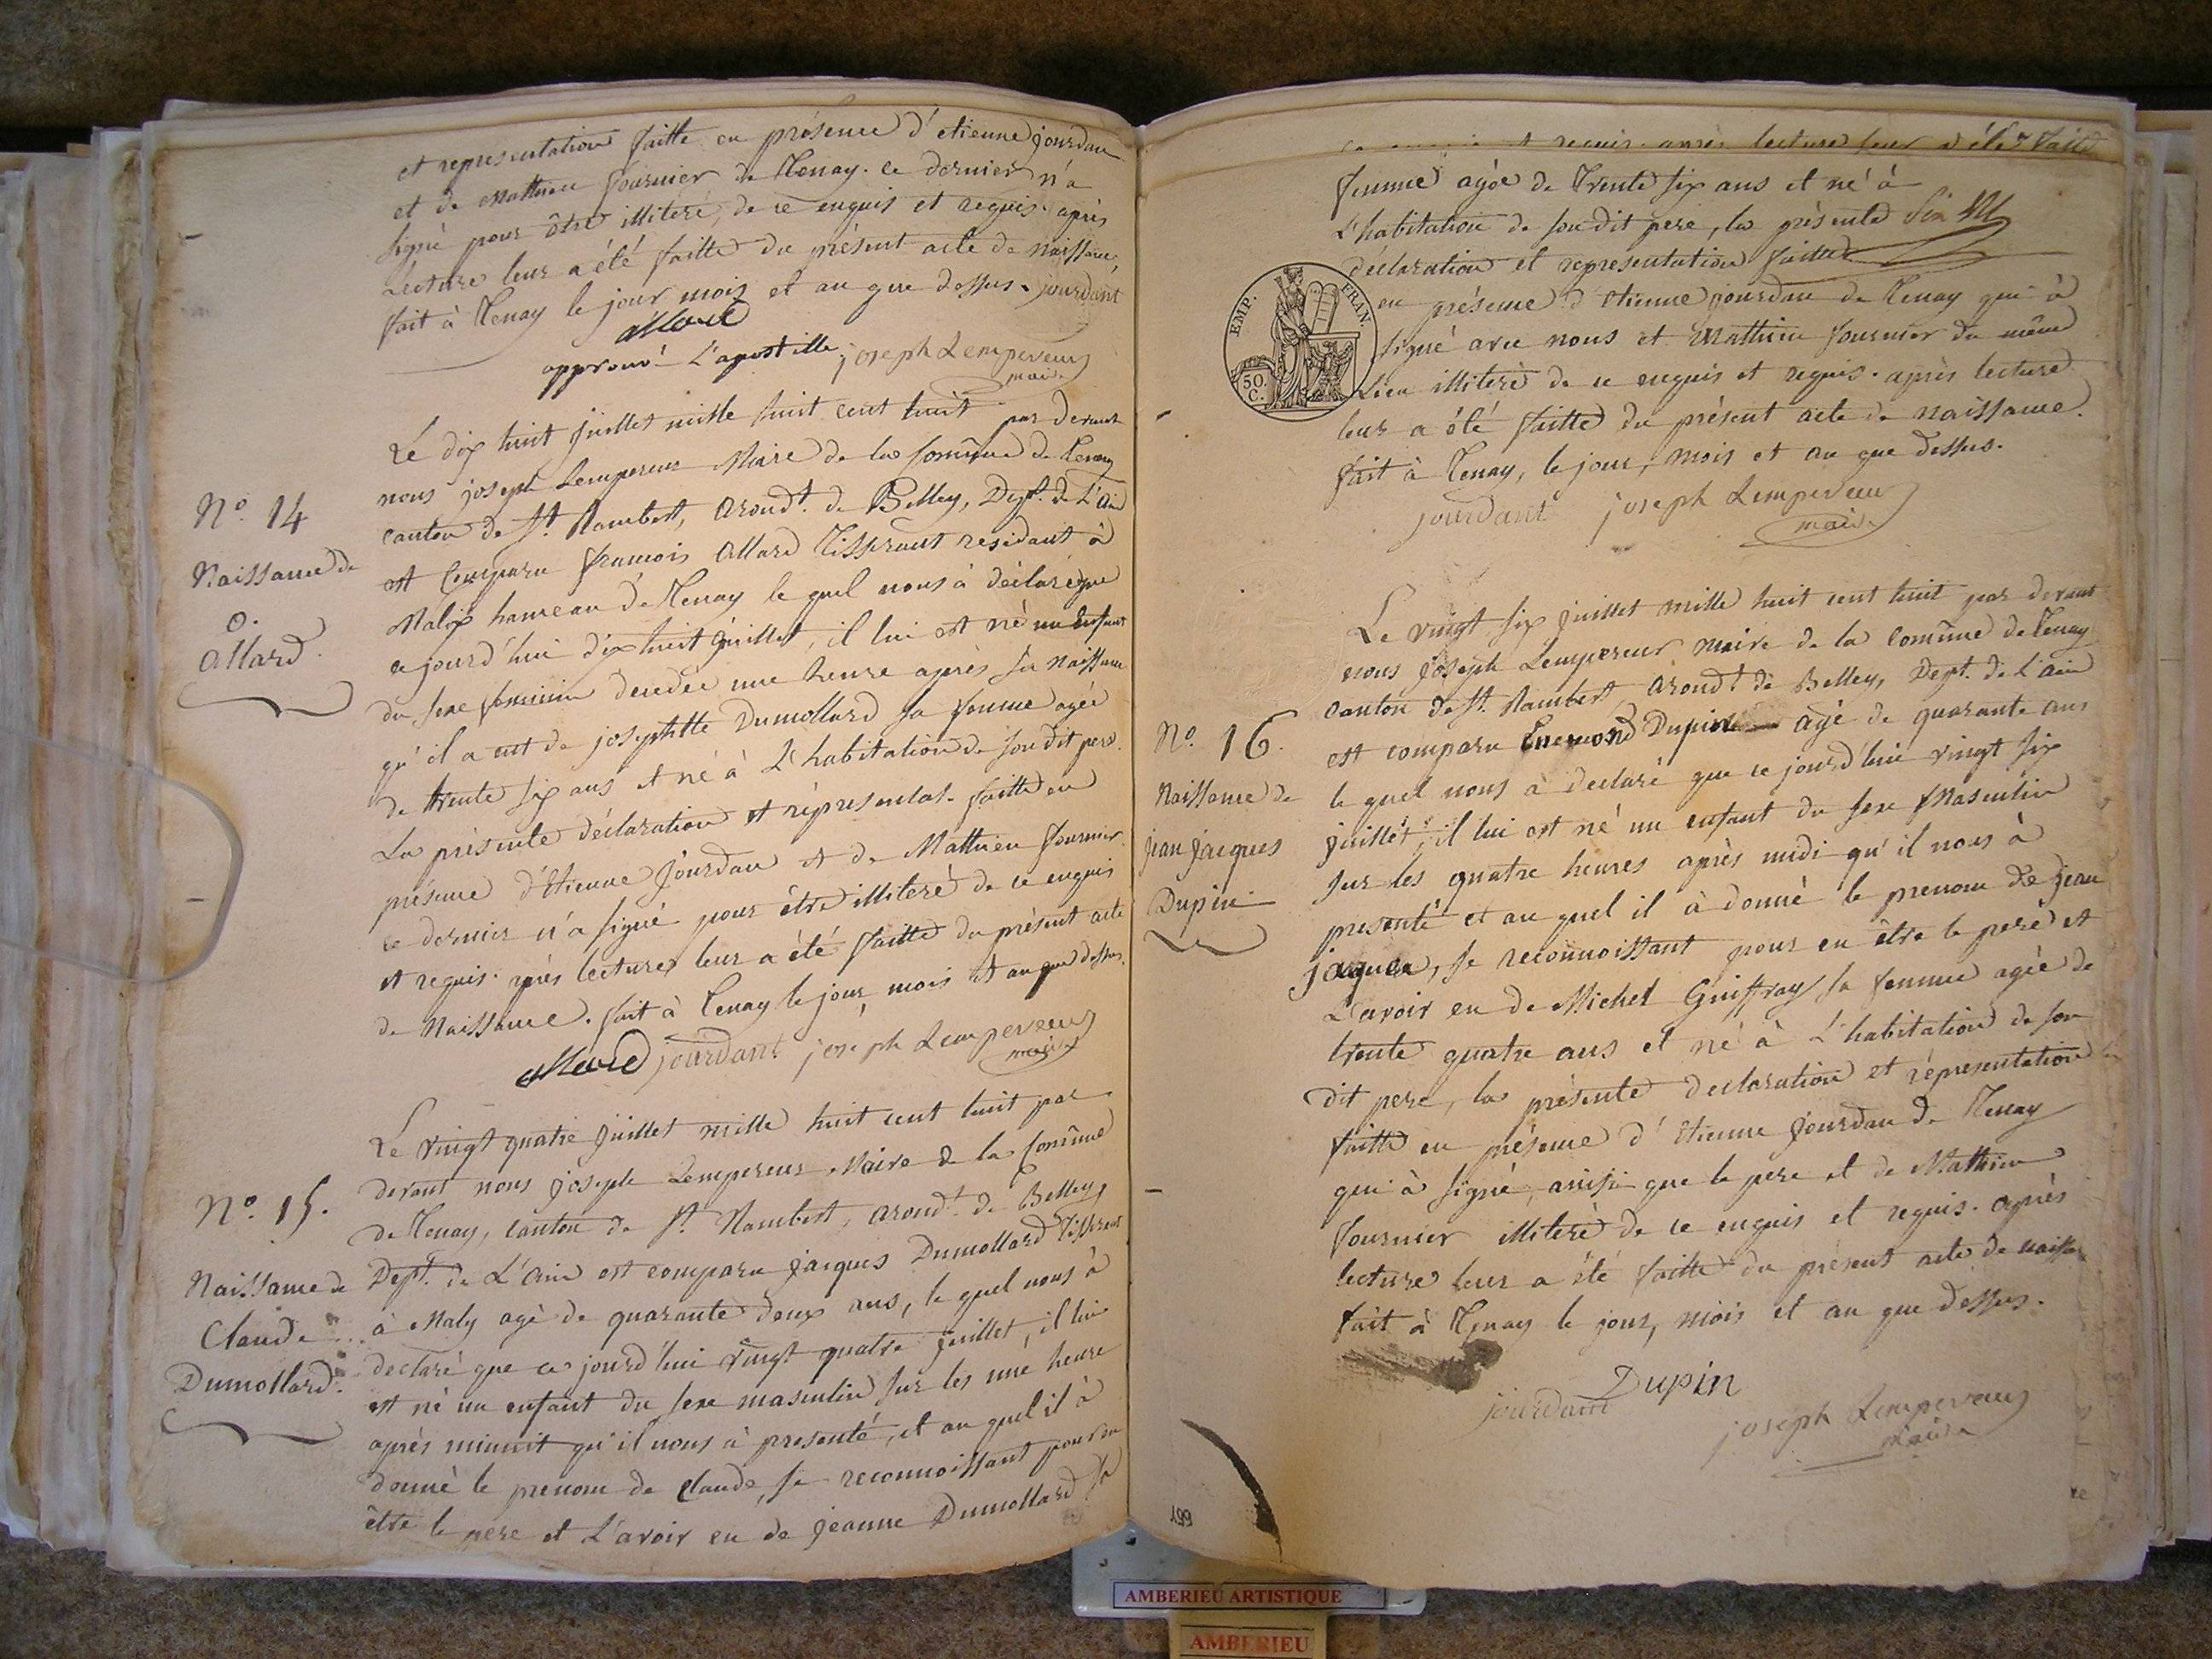 et representation faitte en présence d'etienne jourdan
et de Mathieu fournier de Tenay. ce dernier n'a
signé pour être illiteré, de ce enquis et requis. après
Lecture leur a été faitte du présent acte de naissance,
fait à Tenay le jour mois et an que dessus. jourdant
allard
approuvé L'apostille joseph Lempereur
maire
Nº. 14
Naissance de
O.
Allard.
Le dix huit juillet mille huit cent huit par devant
nous joseph Lempereur Maire de la Comûne de Tenay
canton de St. Rambert, arond.t de Belley, Dept. de L'ain
est Comparu francois Allard Tisserant residant à
Malix hameau de Tenay le quel nous à déclaré que
ce jourd'hui dix huit juillet, il lui est né un enfant
du sexe feminin decedée une heure après sa naissance
qu'il a eut de josephtte Dumollard sa femme agée
de trente six ans et né à L'habitation de son dit pere.
La présente déclaration et répresentat. faitte en
présence d'Etienne jourdan et de Mathieu fournier
ce dernier n'a signé pour être illiteré de ce enquis
et requis. après lecture leur a été faitte du présent acte
de Naissance. fait à Tenay le jour mois et an que dessus.
allard jourdant joseph Lempereur
maire
Nº. 15.
Naissance de
Claude
Dumollard.
Le vingt quatre juillet mille huit cent huit par
devant nous joseph Lempereur Maire de la Comûne
de Tenay, canton de St. Rambert, arond.t de Belley,
Dept. de L'ain est comparu jacques Dumollard Tisserant
à Maly agé de quarante deux ans, le quel nous à
declaré que ce jourd'hui vingt quatre juillet, il lui
est né un enfant du sexe masculin sur les une heure
après minuit qu'il nous à presenté, et au quel il à
donné le prenom de Claude, se reconnoissant pour en
être le pere et L'avoir eu de jeanne Dumollard sa
et requis. après lecture leur a été faitte
femme agée de Trente six ans et né à
L'habitation de son dit pere, la présente
déclaration et representation faitte
EMP. FRAN.
50.
C.
en présence d'etienne jourdan de Tenay qui à
signé avec nous et Mathieu fournier du même
Lieu illiteré de ce enquis et requis. après lecture
leur a été faitte du présent acte de naissance.
fait à Tenay, le jour, mois et an que dessus.
jourdant joseph Lempereur
maire
Nº. 16.
Naissance de
jean jacques
Dupin
Le vingt six juillet mille huit cent huit par devant
nous joseph Lempereur maire de la Comûne de Tenay
canton de St. Rambert, arond.t de Belley, Dept. de L'ain
est comparu Enemond Dupin agé de quarante ans
le quel nous à declaré que ce jourd'hui vingt six
juillet, il lui est né un enfant du sexe Masculin
sur les quatre heures après midi qu'il nous à
presenté et au quel il à donné le prenom de jean
jaques, se reconnoissant pour en être le pere et
L'avoir eu de Michel Guiffray sa femme agée de
trente quatre ans et né à L'habitation de son
dit pere, la présente declaration et répresentation
faitte en présence d'Etienne jourdan de Tenay
qui à signé, ainsi que le pere et de Mathieu
fournier illiteré de ce enquis et requis. après
lecture leur a été faitte du présent acte de naissa
fait à Tenay le jour, mois et an que dessus.
jourdant Dupin
joseph Lempereur
maire
199
AMBERIEU ARTISTIQUE
AMBERIEU